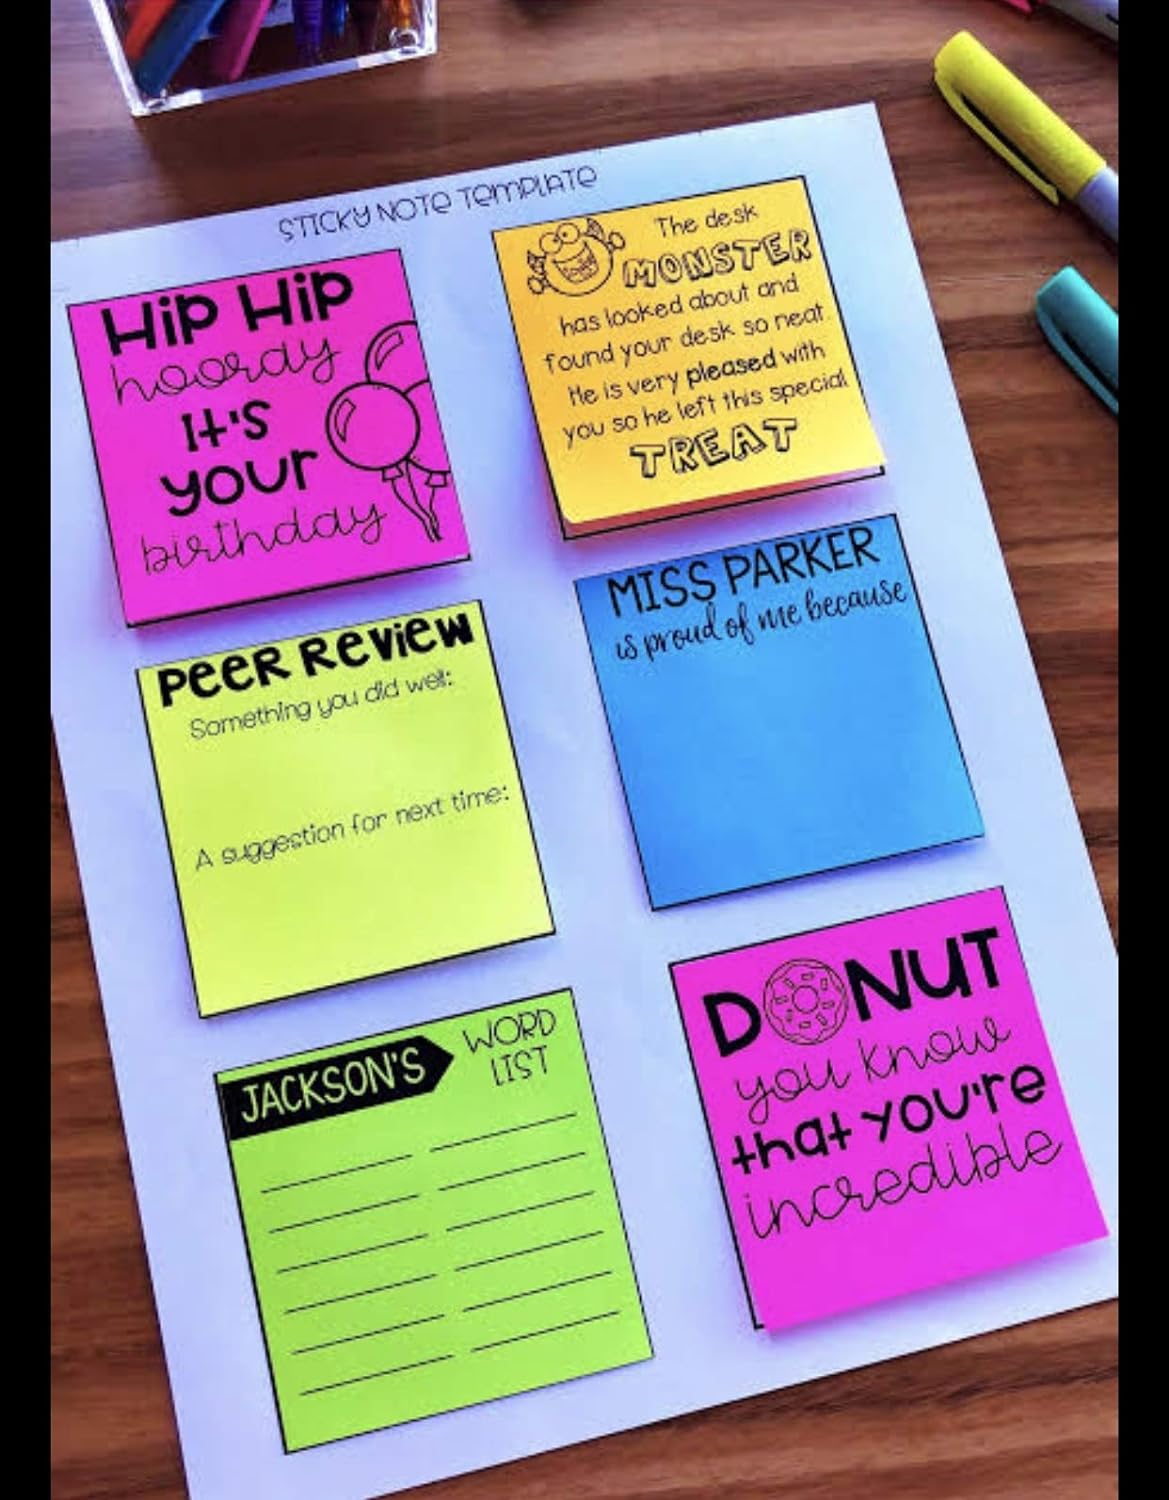 STICKY NOTE TEMPLATE
HIP HIP
hooray
It's
your
birthday
The desk
MONSTER
has looked about and
found your desk so neat.
He is very pleased with
you so he left this special
TREAT
PEER REVIEW
Something you did well:
A suggestion for next time:
MISS PARKER
is proud of me because
JACKSON'S WORD
LIST
DONUT
you know
that you're
incredible